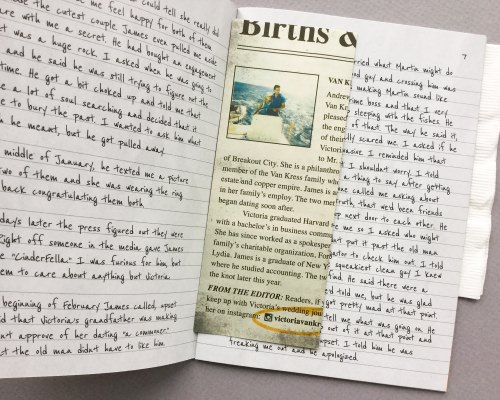 could tell she really did
me feel happy for both of them
the cutest couple. James even pulled me aside
me a secret. He had bought an engagement
t was a huge rock. I asked when he was going to
time. He got a bit choked up and told me that
e a lot of soul searching and decided that it
e to bury the past. I wanted to ask him what
h he meant, but he got pulled away.
middle of January, he texted me a picture
Two of them and she was wearing the ring
back congratulating them both
days later the press figured out they were
Right off someone in the media gave James
"CinderFella." I was furious for him, but
em to care about anything but Victoria.
beginning of February James called, upset
id that Victoria's grandfather was making
n't approve of her dating "a commoner"
t the old man didn't have to like him.
Births &
VAN K
Andrew
Van Kr
pleased
the eng
of their
to Mr.
of Breakout City. She is a philanthr
member of the Van Kress family wh
estate and copper empire. James is a
in her family's employ. The two met
began dating soon after.
Victoria graduated Harvard
with a bachelor's in business comm
She has since worked as a spokesper
family's charitable organization, Ford
Lydia. James is a graduate of New Y
where he studied accounting. The tw
the knot later this year.
FROM THE EDITOR: Readers, if y
keep up with Victoria's wedding jou
her on instagram: victoriavankr
7
rried what Martin might do
d guy and crossing him was
making Martin sound like
ime boss and that I very
sleeping with the fishes. He
of that. The way he said it,
lly scared me. I asked if he
nsane. I reminded him that
I shouldn't worry. I told
thing to say after getting
one called me asking about
truth, that we'd been friends
p next door to each other. He
e me so I asked who might
n't put it past the old man
ator to check him out. I told
squeakiest clean guy I knew
find. He said there were a
d told me, but he was glad
got pretty mad at that point.
tell me what was going on. He
out of it at that point and
upset. I told him he was
freaking me out and he apologized.